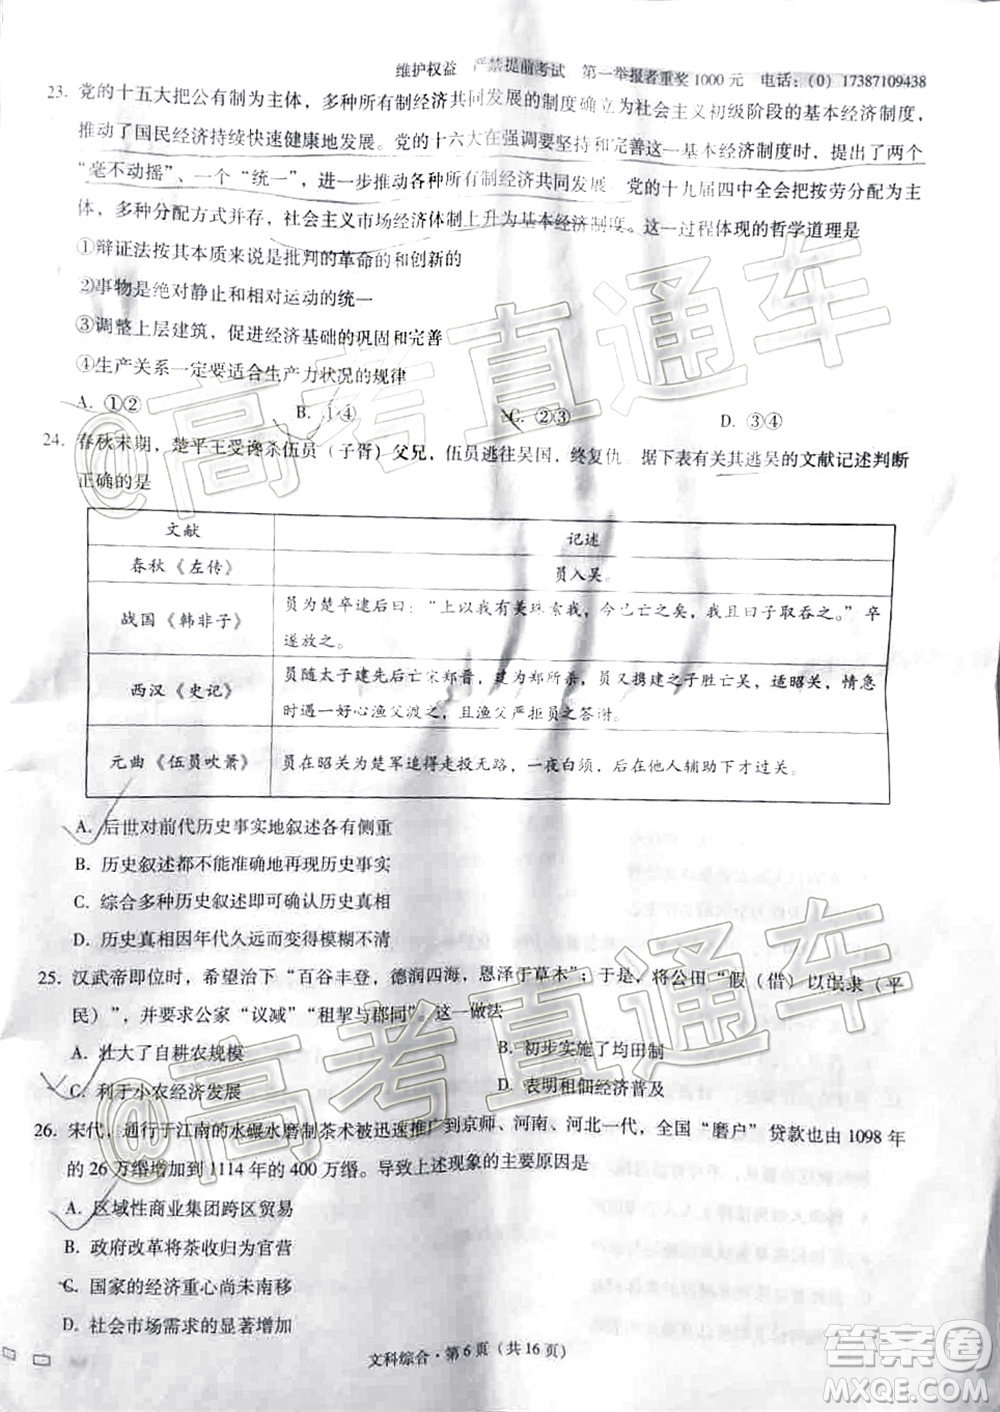 维护权益 严禁提前考试 第一举报者重奖1000元 电话:(0)17387109438
23. 党的十五大把公有制为主体，多种所有制经济共同发展的制度确立为社会主义初级阶段的基本经济制度，
推动了国民经济持续快速健康地发展。党的十六大在强调要坚持和完善这一基本经济制度时，提出了两个
“毫不动摇”、一个“统一”，进一步推动各种所有制经济共同发展。党的十九届四中全会把按劳分配为主
体，多种分配方式并存，社会主义市场经济体制上升为基本经济制度。这一过程体现的哲学道理是
①辩证法按其本质来说是批判的革命的和创新的
②事物是绝对静止和相对运动的统一
③调整上层建筑，促进经济基础的巩固和完善
④生产关系一定要适合生产力状况的规律
A. ①② B. ①④ C. ②③ D. ③④
24. 春秋末期，楚平王受谗杀伍员（子胥）父兄，伍员逃往吴国，终复仇 据下表有关其逃吴的文献记述判断
正确的是
文献 记述
春秋《左传》 员入吴。
战国《韩非子》 员为楚卒逮后曰：“上以我有美珠索我，今已亡之矣，我且曰子取吞之。”卒
遂放之。
西汉《史记》 员随太子建先后亡宋郑晋，建为郑所杀；员又携建之子胜亡吴，适昭关，情急
时遇一好心渔父渡之，且渔父严拒员之答谢。
元曲《伍员吹箫》 员在昭关为楚军追得走投无路，一夜白须，后在他人辅助下才过关。
A. 后世对前代历史事实地叙述各有侧重
B. 历史叙述都不能准确地再现历史事实
C. 综合多种历史叙述即可确认历史真相
D. 历史真相因年代久远而变得模糊不清
25. 汉武帝即位时，希望治下“百谷丰登，德润四海，恩泽于草木”；于是，将公田“假（借）以氓隶（平
民）”，并要求公家“议减”“租挈与郡同”。这一做法
A. 壮大了自耕农规模 B. 初步实施了均田制
C. 利于小农经济发展 D. 表明租佃经济普及
26. 宋代，通行于江南的水碾水磨制茶术被迅速推广到京师、河南、河北一代，全国“磨户”贷款也由1098年
的26万缗增加到1114年的400万缗。导致上述现象的主要原因是
A. 区域性商业集团跨区贸易
B. 政府改革将茶收归为官营
C. 国家的经济重心尚未南移
D. 社会市场需求的显著增加
文科综合·第6页（共16页）
@高考直通车
@高考直通车
答案圈
MXQE.COM